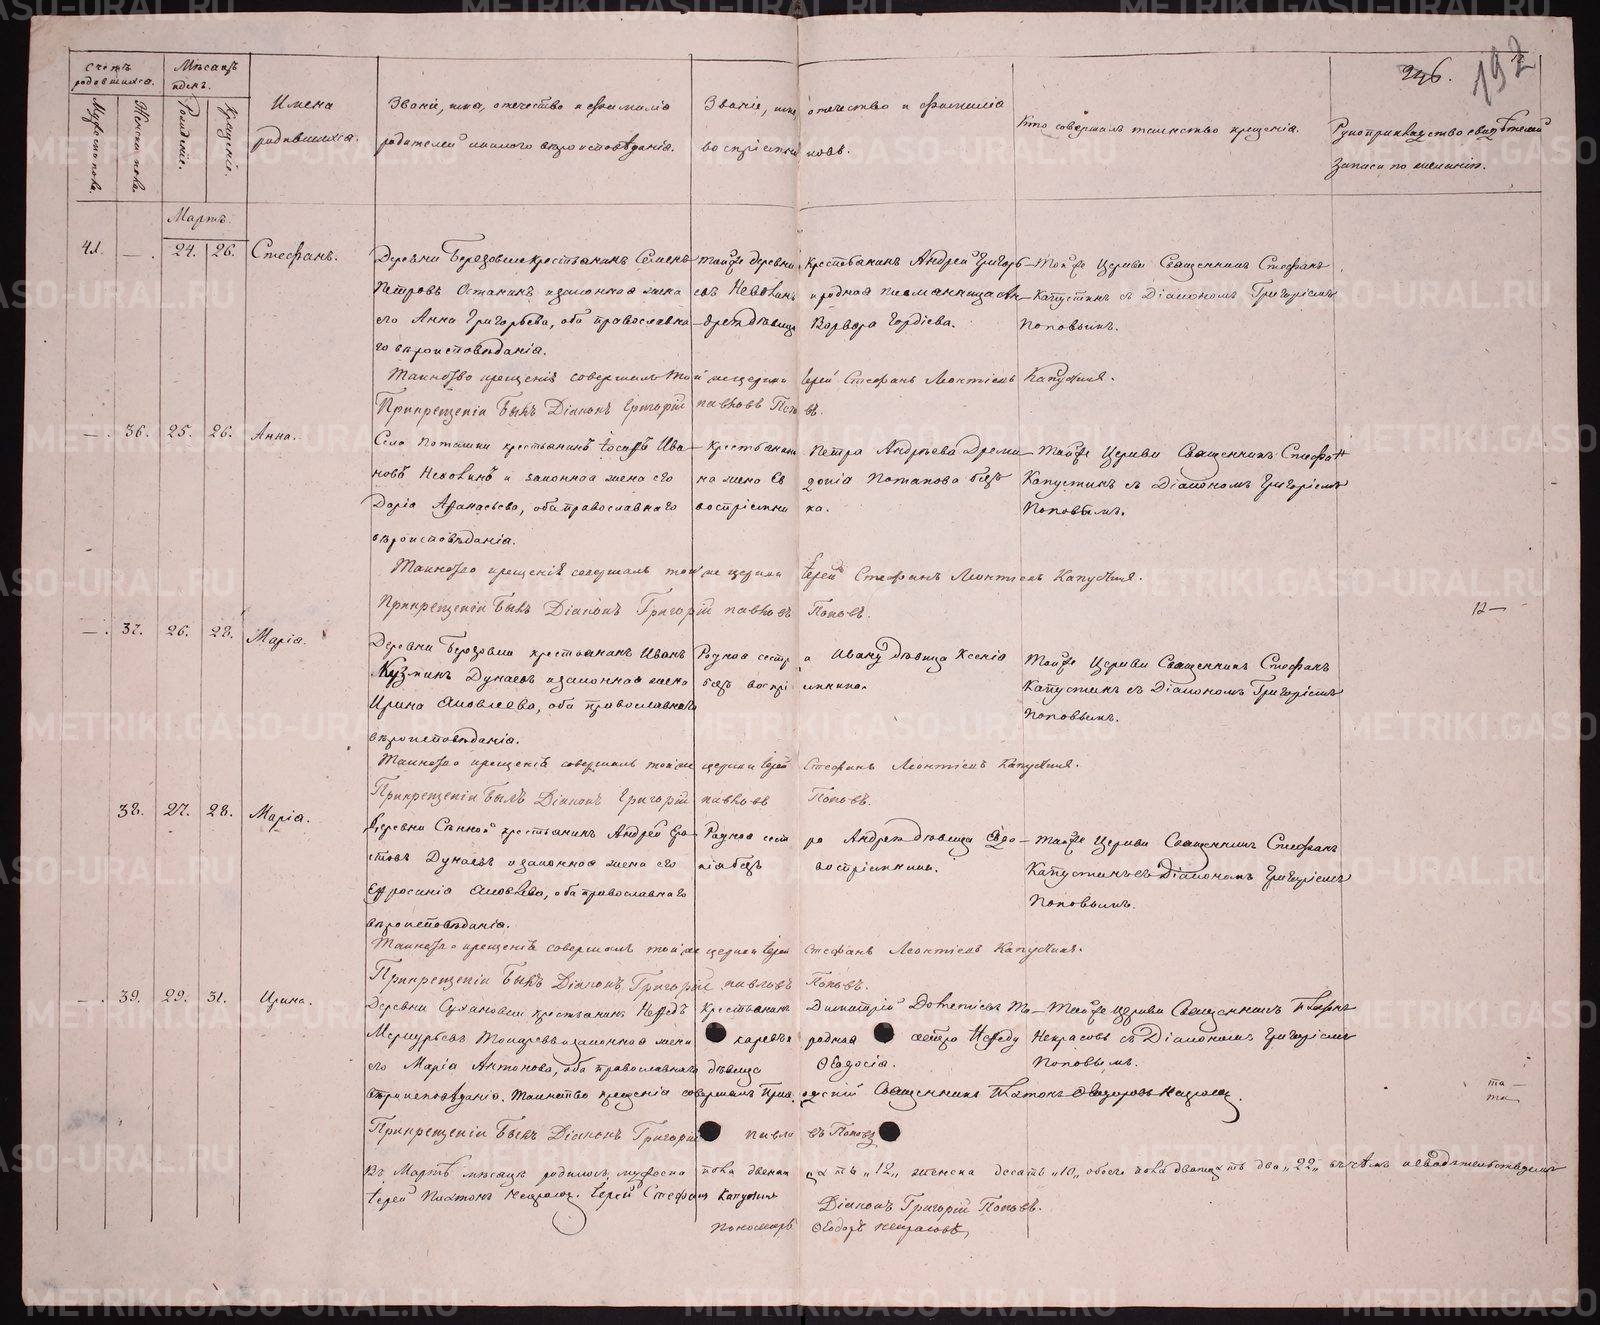 246. 192
Счетъ родившихся. Мѣсяцъ и день.
Мужеска пола. Женска пола. Рожденіе. Крещеніе.
Имена родившихся.
Званіе, имя, отечество и фамилія родителей и какого вѣроисповѣданія.
Званіе, имя, отечество и фамилія воспріемниковъ.
Кто совершалъ таинство крещенія.
Рукоприкладство свидѣтелей записи по желанію.
Мартъ.
41. — 24. 26. Стефанъ.
Деревни Березовки крестьянинъ Семенъ
Петровъ Останинъ и законная жена
его Анна Григорьева, оба православна
го вѣроисповѣданія.
тойже деревни крестьянинъ Андрей Григорь
евъ Неволинъ и родная племянница
дѣвица Варвара Гордіева.
Тойже Церкви Священникъ Стефанъ
Капустинъ съ Діакономъ Григоріемъ
Поповымъ.
Таинство крещенія совершалъ той же церкви Іерей Стефанъ Леонтіевъ Капустинъ.
При крещеніи былъ Діаконъ Григорій Павловъ Поповъ.
— . 36. 25. 26. Анна.
Села Поташки крестьянинъ Іосифъ Ива
новъ Неволинъ и законная жена его
Дарія Афанасьева, оба православнаго
вѣроисповѣданія.
Крестьянина Петра Андрѣева
жена Евдокія Потапова безъ
воспріемника.
Тойже Церкви Священникъ Стефанъ
Капустинъ съ Діакономъ Григоріемъ
Поповымъ.
Таинство крещенія совершалъ той же церкви Іерей Стефанъ Леонтіевъ Капустинъ.
При крещеніи былъ Діаконъ Григорій Павловъ Поповъ.
12 —
— . 37. 26. 28. Марія.
Деревни Березовки крестьянинъ Иванъ
Кузминъ Дунаевъ и законная жена
Ирина Яковлева, оба православнаго
вѣроисповѣданія.
Родная сестра Ивану дѣвица Ксенія
безъ воспріемника.
Тойже Церкви Священникъ Стефанъ
Капустинъ съ Діакономъ Григоріемъ
Поповымъ.
Таинство крещенія совершалъ той же церкви Іерей Стефанъ Леонтіевъ Капустинъ.
При крещеніи былъ Діаконъ Григорій Павловъ Поповъ.
38. 27. 28. Марія.
Деревни Сѣнной крестьянинъ Андрей
Дунаевъ и законная жена его
Ефросинія Яковлева, оба православнаго
вѣроисповѣданія.
Родная сестра Андрея дѣвица
безъ воспріемника.
Тойже Церкви Священникъ Стефанъ
Капустинъ съ Діакономъ Григоріемъ
Поповымъ.
Таинство крещенія совершалъ той же церкви Іерей Стефанъ Леонтіевъ Капустинъ.
При крещеніи былъ Діаконъ Григорій Павловъ Поповъ.
— . 39. 29. 31. Ирина.
Деревни Сухановки крестьянинъ Нефедъ
Меркурьевъ и законная жена
его Марія Антонова, оба православнаго
Крестьянинъ Димитрій
родная сестра Нефеду
дѣвица Ѳеодосія.
Тойже церкви Священникъ Платонъ
Некрасовъ съ Діакономъ Григоріемъ
Поповымъ.
вѣроисповѣданія. Таинство крещенія совершалъ Приходскій Священникъ Платонъ Ѳеодоровъ
При крещеніи былъ Діаконъ Григорій Павловъ Поповъ
Въ Мартѣ мѣсяцѣ родилось: мужеска пола двенадцать „12„ женска десять „10„ обоего пола двадцать два „22„ въ чемъ и свидѣтельствуемъ
Іерей Платонъ Некрасовъ. Іерей Стефанъ Капустинъ
Діаконъ Григорій Поповъ.
Пономарь Ѳеодоръ Некрасовъ
METRIKI.GASO-URAL.RU